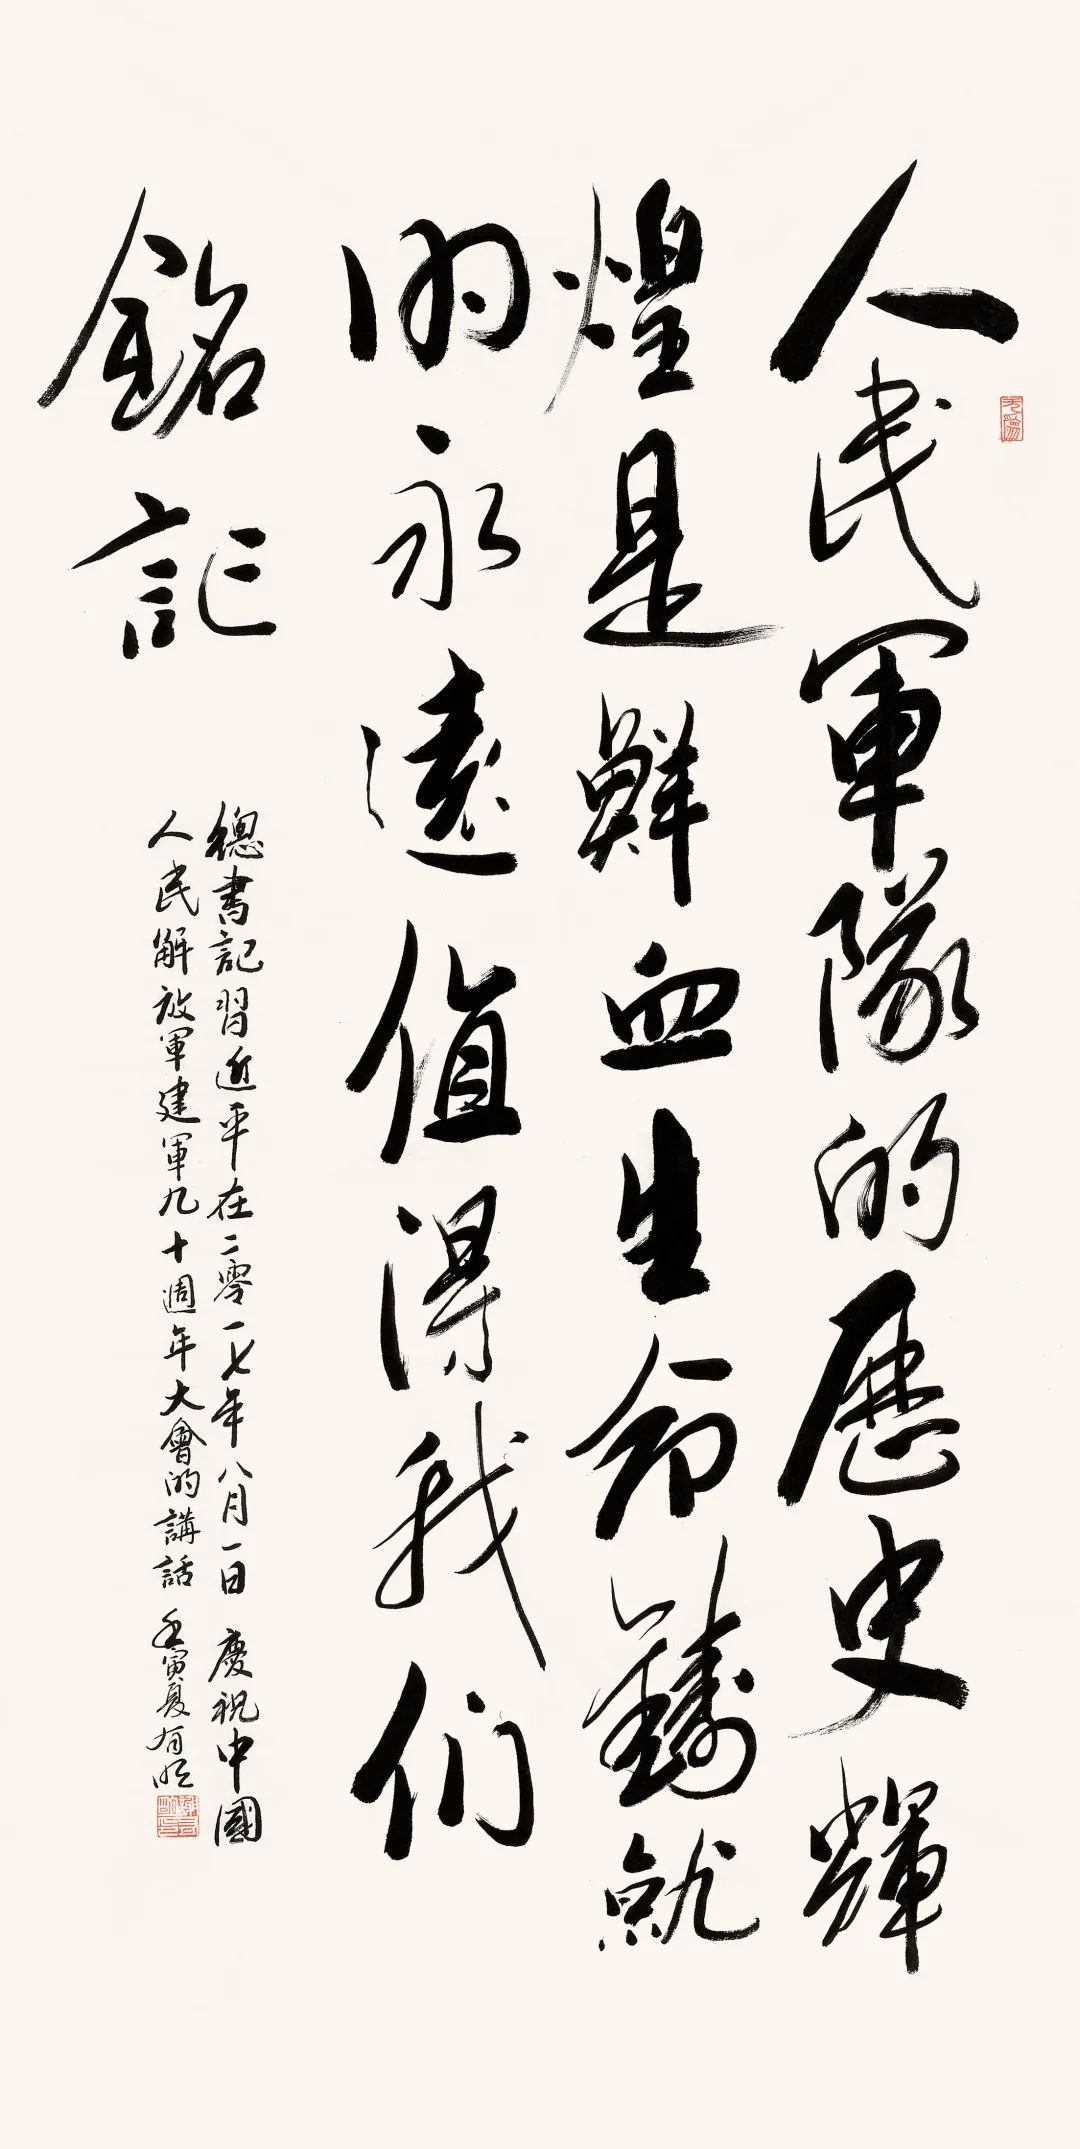 人民軍隊的歷史輝
煌是鮮血生命鑄就
的永遠值得我们
銘記
總書記習近平在二零一七年八月一日慶祝中國
人民解放軍建軍九十週年大會的講話 壬寅夏有明